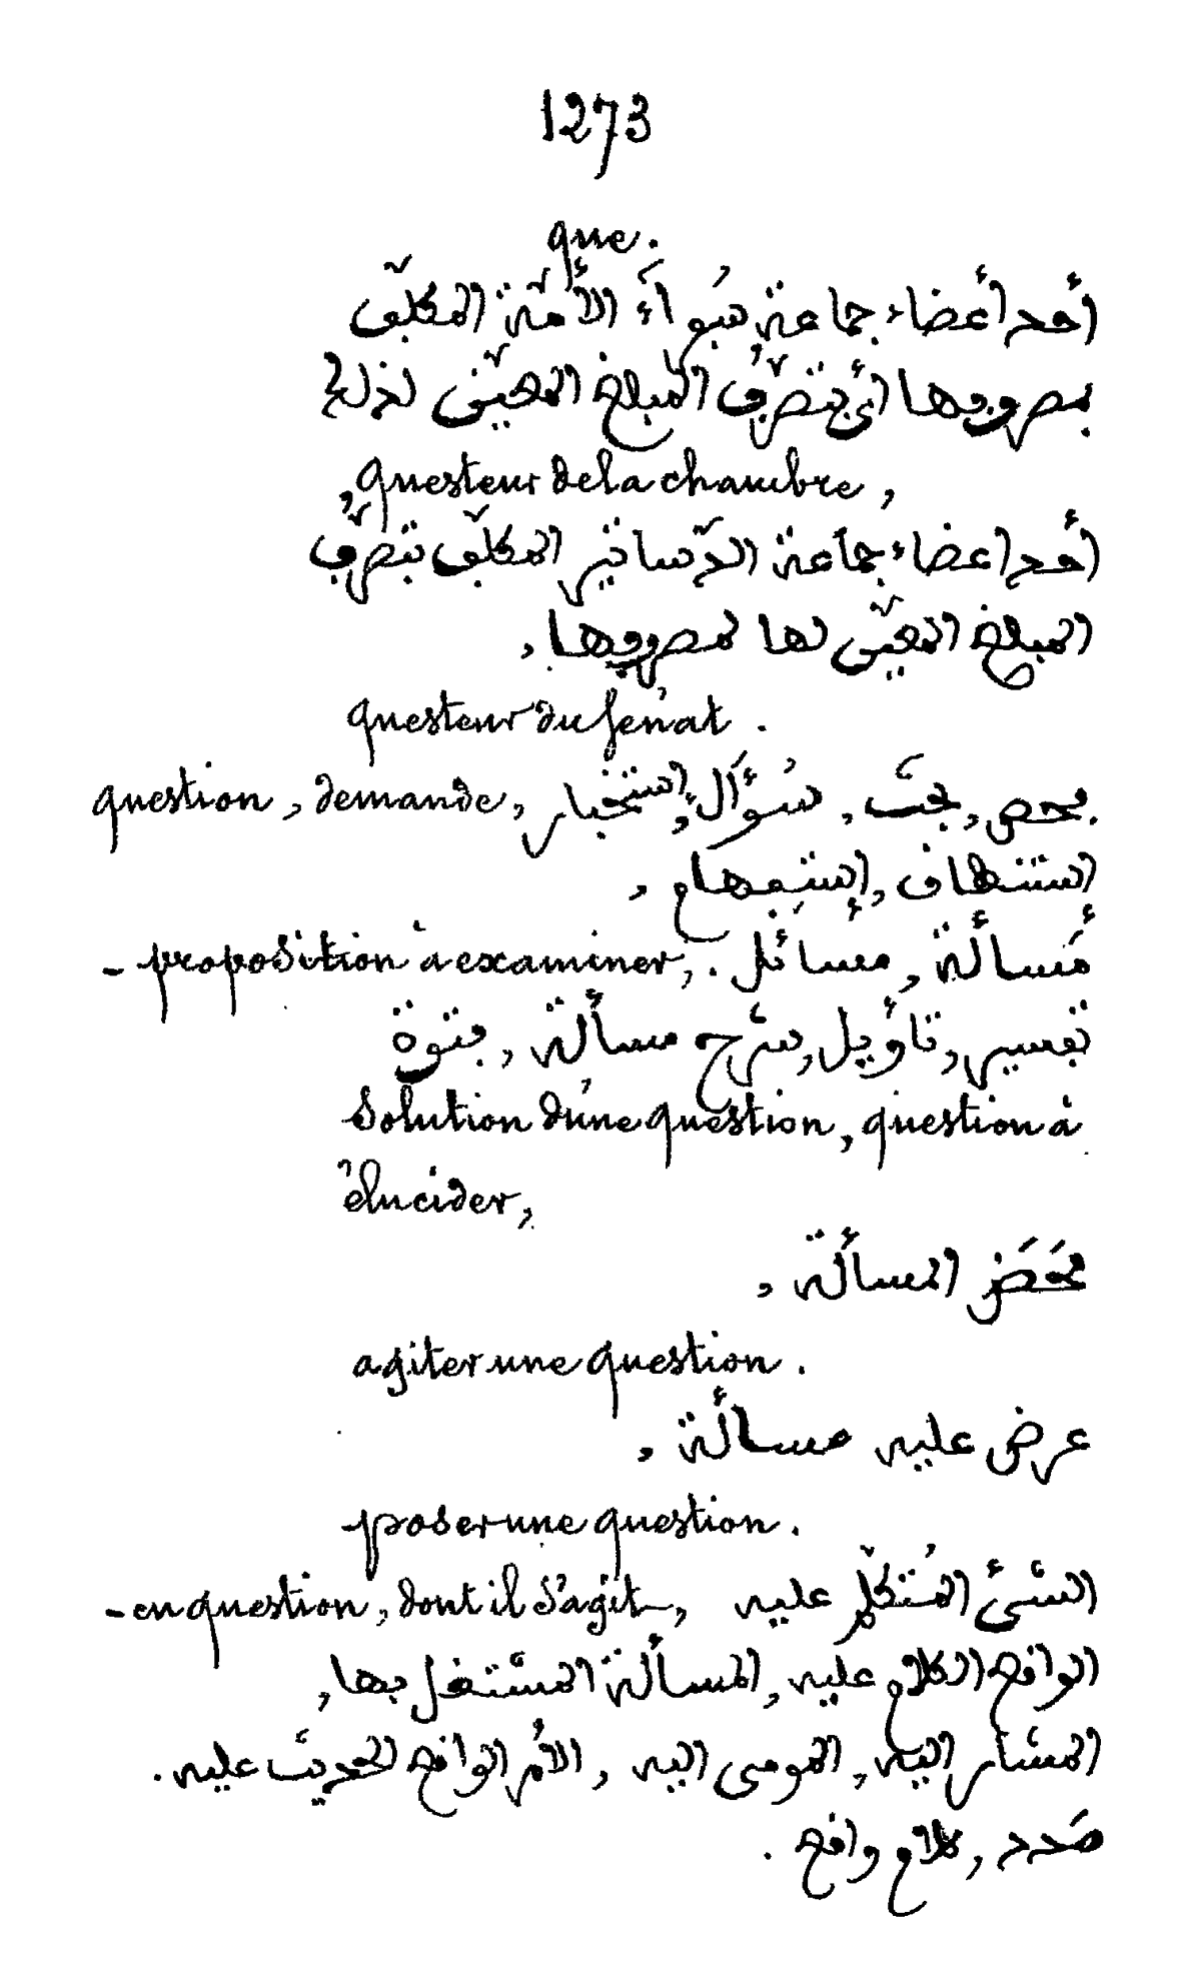 1273
que.
أحد أعضاء جماعة الأمّة المكلّف
بمصروفها أي بتصرّف المبلغ المعيّن لذلك
questeur de la chambre,
أحد اعضاء جماعة الدّساتير المكلّف بتصرّف
المبلغ المعيّن لها لمصروفها,
questeur du sénat.
question, demande, فحص, بحث, سُؤَال, استخبار
استنطاق, إستفهام,
- proposition à examiner, مَسألة, مسائل.
تفسير, تاؤيل, شرح مسألة, فتوة
solution d'une question, question à
élucider,
مَحَضَ المسألة,
agiter une question.
عرض عليه مسألة,
poser une question.
- en question, dont il s'agit, الشئ المُتكلّم عليه
الواقع الكلام عليه, المسألة المشتغل بها,
المشار اليه, المومى اليه, الامر الواقع الحديث عليه.
صَدد, كلام واقع.